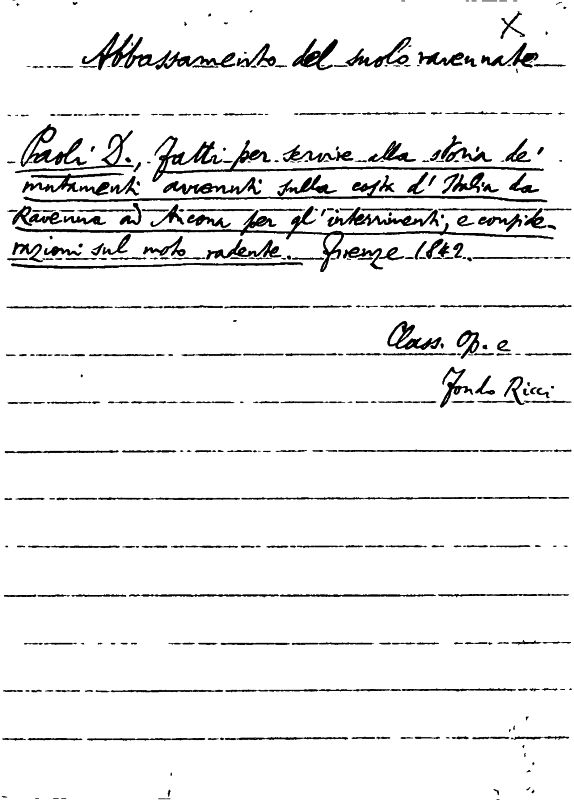 X
Abbassamento del suolo ravennate
Paoli D., Fatti per servire alla storia de'
mutamenti avvenuti sulla costa d'Italia da
Ravenna ad Ancona per gl'interrimenti, e conside-
razioni sul moto radente. Firenze 1842.
Class. Op. e
Fondo Ricci